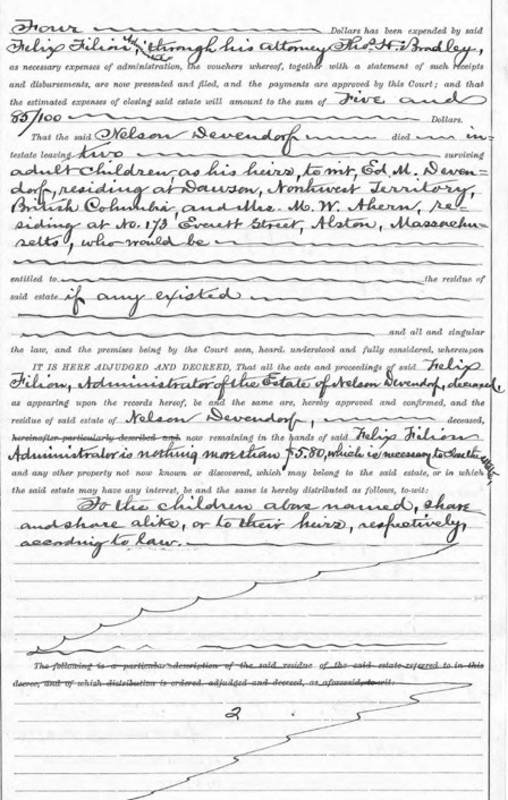 Four Dollars has been expended by said
Felix Filion, through his attorney Thos. H. Bradley,
as necessary expenses of administration, the vouchers whereof, together with a statement of such receipts
and disbursements, are now presented and filed, and the payments are approved by this Court; and that
the estimated expenses of closing said estate will amount to the sum of Five and
85/100 Dollars.
That the said Nelson Devendorf died in-
testate leaving two surviving
adult children, as his heirs, to wit, Ed. M. Deven=
dorf, residing at Dawson, Northwest Territory,
British Columbia, and Mrs. M. W. Ahern, re-
siding at No. 173 Everett Street, Alston, Massachu-
setts, who would be
entitled to the residue of
said estate if any existed
and all and singular
the law, and the premises being by the Court seen, heard, understood and fully considered, whereupon
IT IS HERE ADJUDGED AND DECREED, That all the acts and proceedings of said Felix
Filion, Administrator of the Estate of Nelson Devendorf, deceased,
as appearing upon the records hereof, be and the same are, hereby approved and confirmed, and the
residue of said estate of Nelson Devendorf, deceased,
hereinafter particularly described and now remaining in the hands of said Felix Filion
Administrator is nothing more than $5.80, which is necessary to close the
and any other property not now known or discovered, which may belong to the said estate, or in which
the said estate may have any interest, be and the same is hereby distributed as follows, to-wit:
To the children above named, share
and share alike, or to their heirs, respectively,
according to law.
The following is a particular description of the said residue of the said estate referred to in this
decree, and of which distribution is ordered, adjudged and decreed, as aforesaid, to-wit:
2